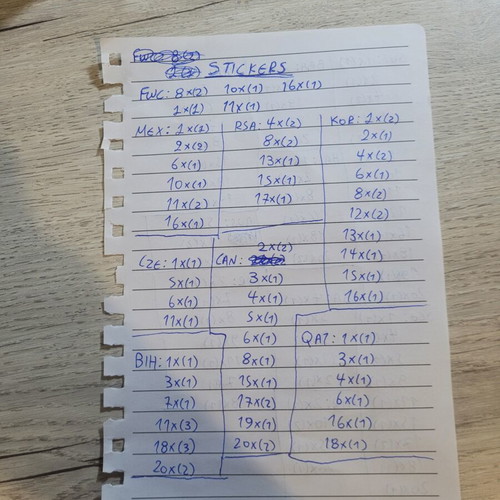 STICKERS
FWC: 8x(2) 10x(1) 16x(1)
1x(1) 11x(1)
MEX: 1x(1)
2x(2)
6x(1)
10x(1)
11x(2)
16x(1)
RSA: 4x(2)
8x(2)
13x(1)
15x(1)
17x(1)
KOR: 1x(2)
2x(1)
4x(2)
6x(1)
8x(2)
12x(2)
13x(1)
14x(1)
15x(1)
16x(1)
CZE: 1x(1)
5x(1)
6x(1)
11x(1)
CAN: 2x(2)
3x(1)
4x(1)
5x(1)
6x(1)
8x(1)
15x(1)
17x(2)
19x(1)
20x(2)
BIH: 1x(1)
3x(1)
7x(1)
11x(3)
18x(3)
20x(2)
QAT: 1x(1)
3x(1)
4x(1)
6x(1)
16x(1)
18x(1)